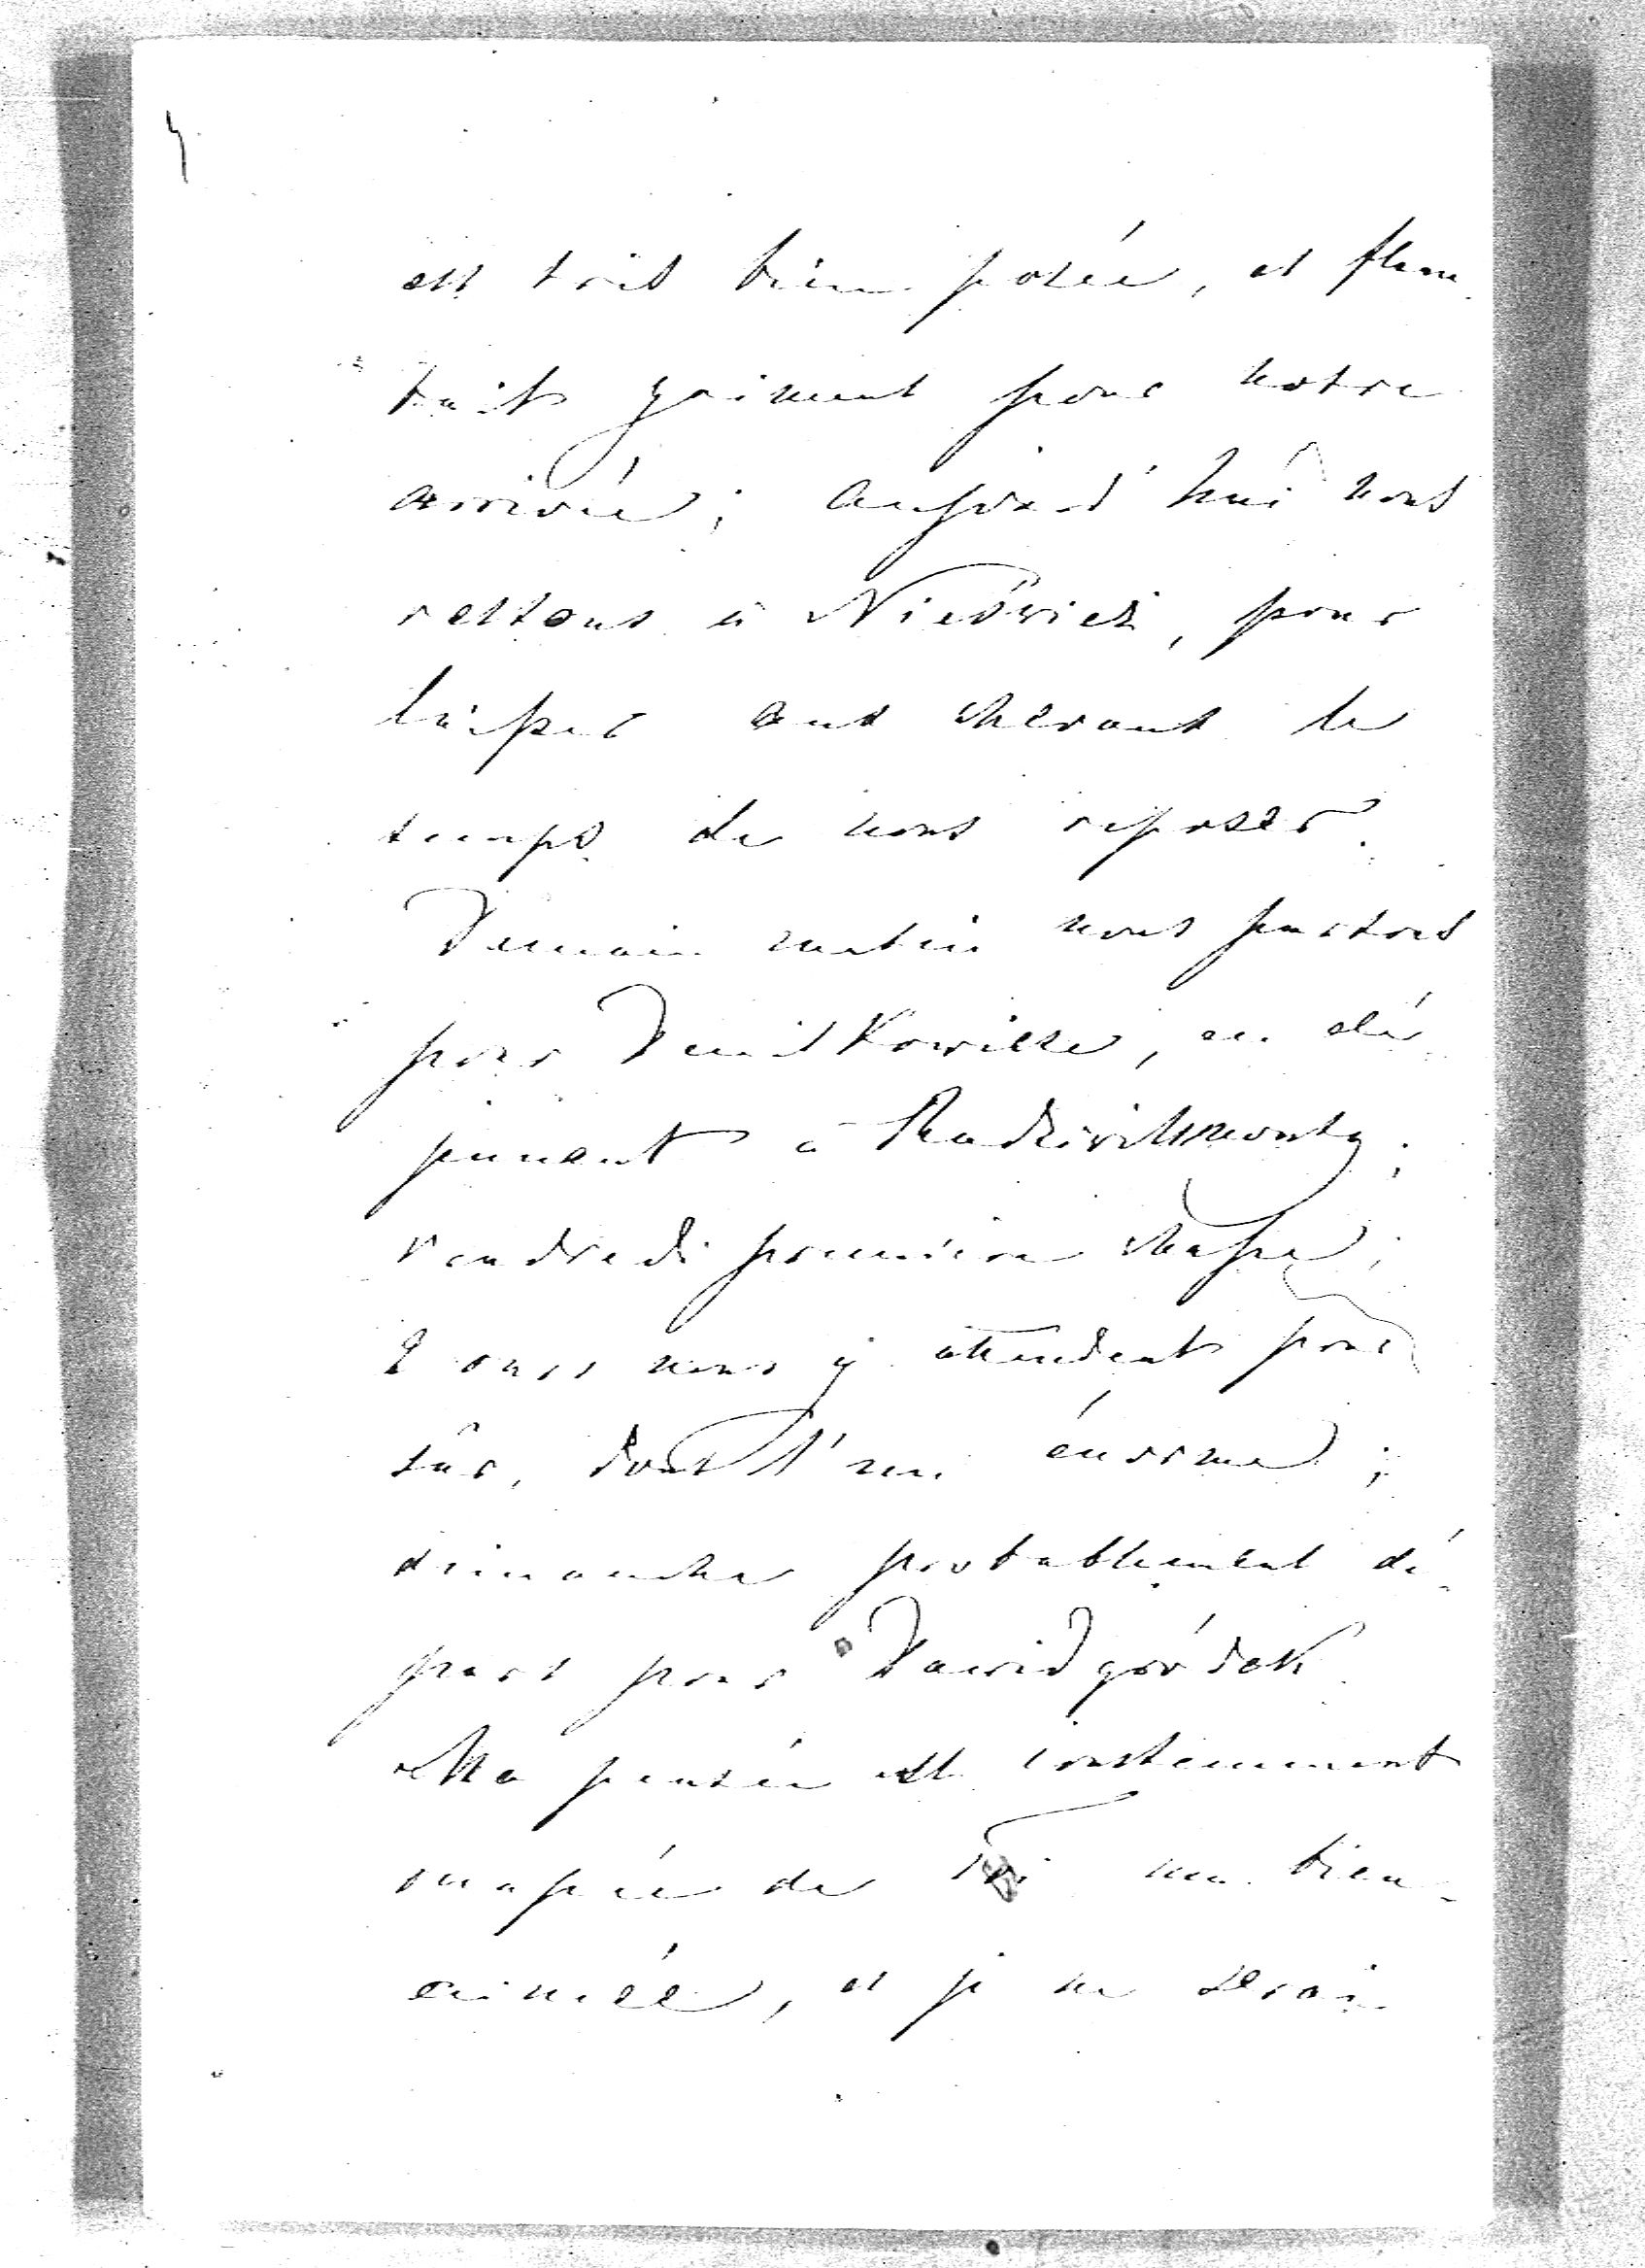 est très bien posée, et flam
bait gaiment pour notre
arrivée; aujourd'hui nous
restons à Nieśwież, pour
laisser aux chevaux le
temps de nous reposer.
Demain matin nous partons
pour Deniskowicze, en dé
jeunant à Radziwiłłmonty;
vendredi première chasse;
2 ours nous y attendent pour
sûr, dont l'un énorme;
dimanche probablement dé-
part pour Dawidgródek.
Ma pensée est constemment
occupée de Toi ma bien-
aimée, et je ne serai